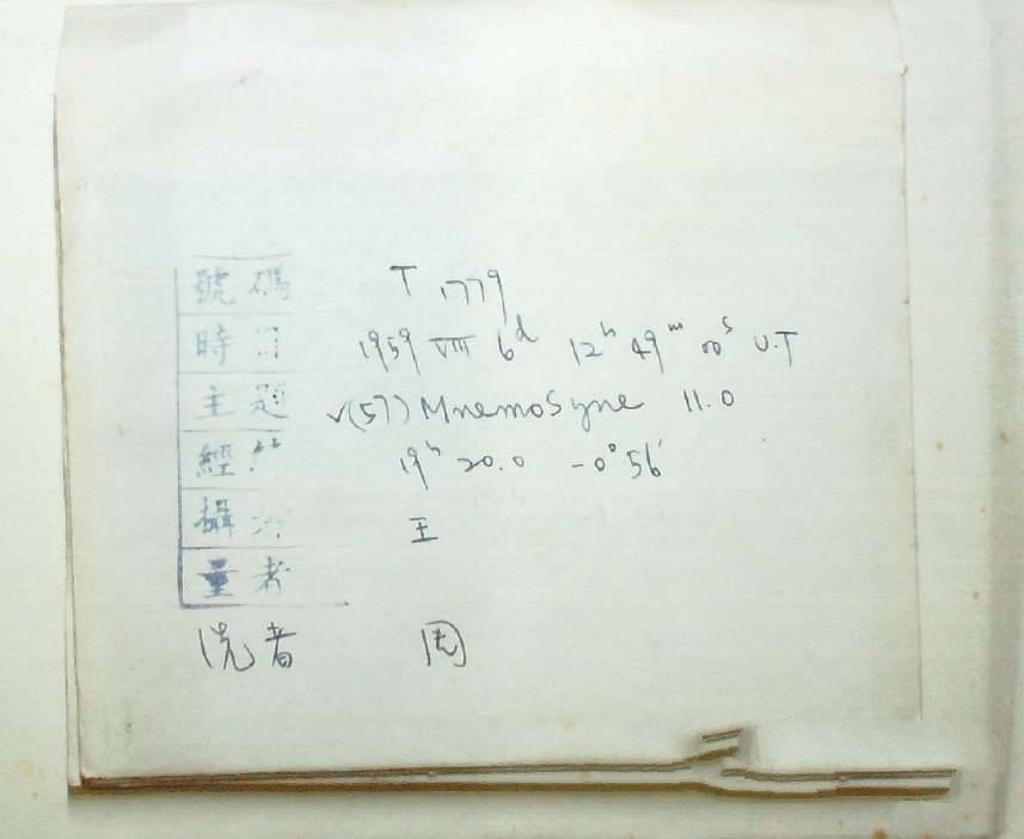 號碼 T 1779
時 1959 VIII 6d 12h 49m 00s U.T
主題 √(57) Mnemosyne 11.0
經 19h 20.0 -0°56'
攝 王
量者
洗者 周